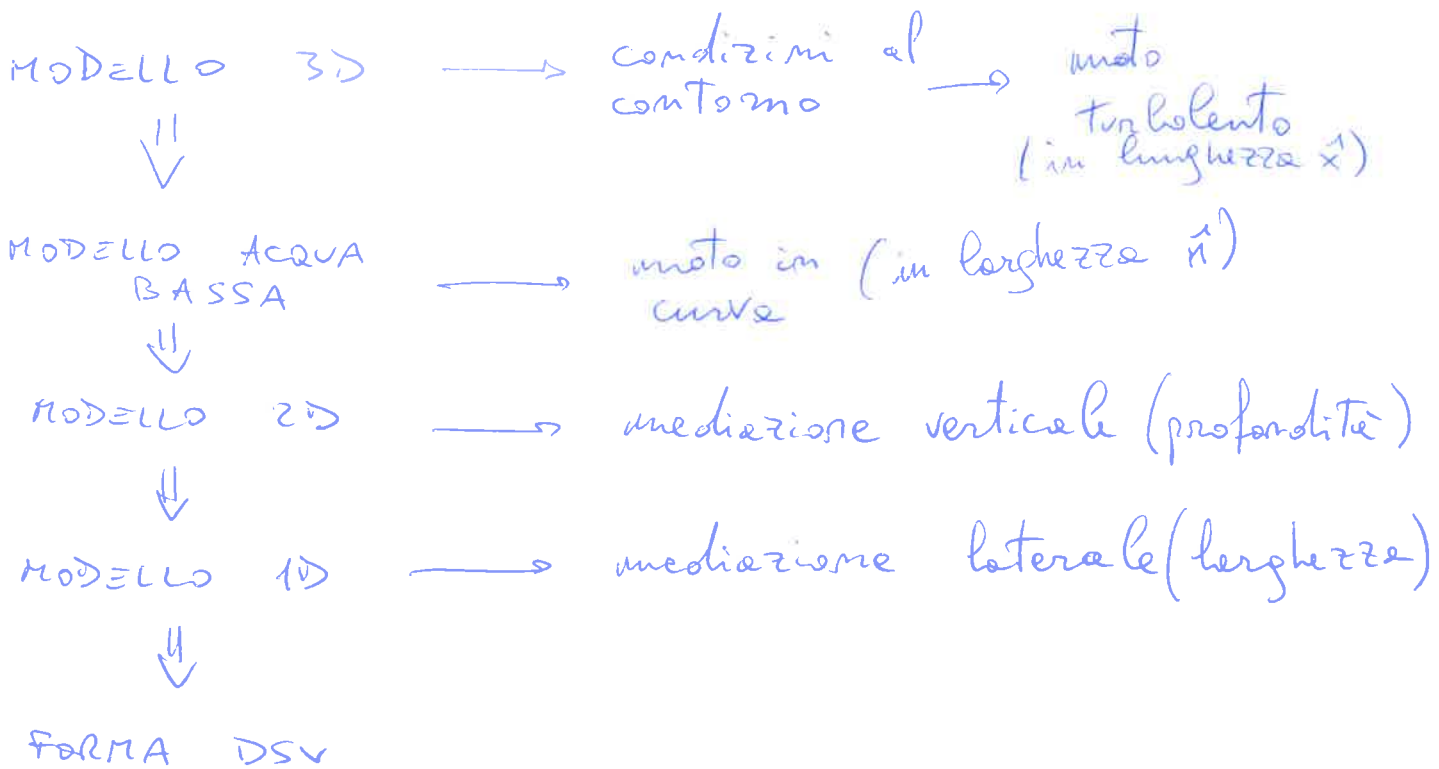 MODELLO 3D → condizioni al contorno → moto turbolento (in lunghezza x̂)
⇓
MODELLO ACQUA BASSA → moto in curva (in larghezza n̂)
⇓
MODELLO 2D → mediazione verticale (profondità)
⇓
MODELLO 1D → mediazione laterale (larghezza)
⇓
FORMA DSV